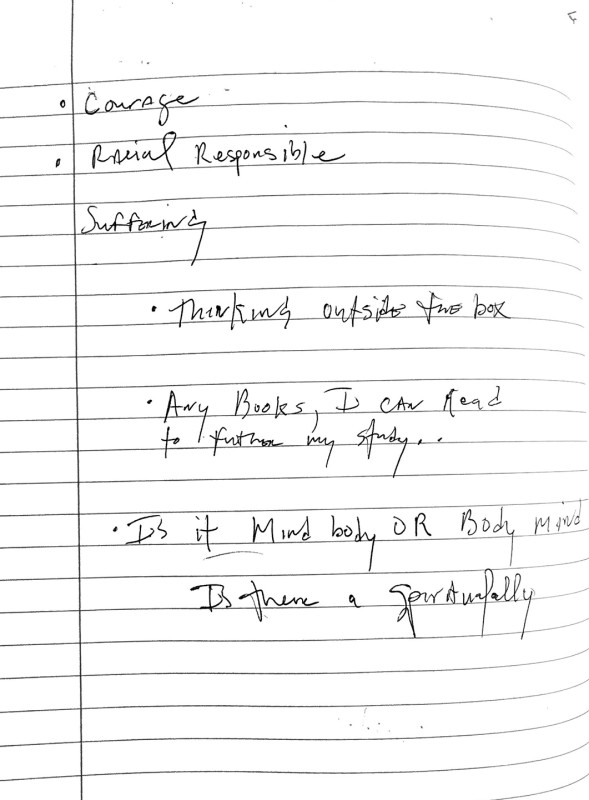 • Courage
• Racial Responsible
Suffering
• Thinking outside the box
• Any Books, I can Read
to further my study..
• Is it Mind body OR Body mind
Is there a